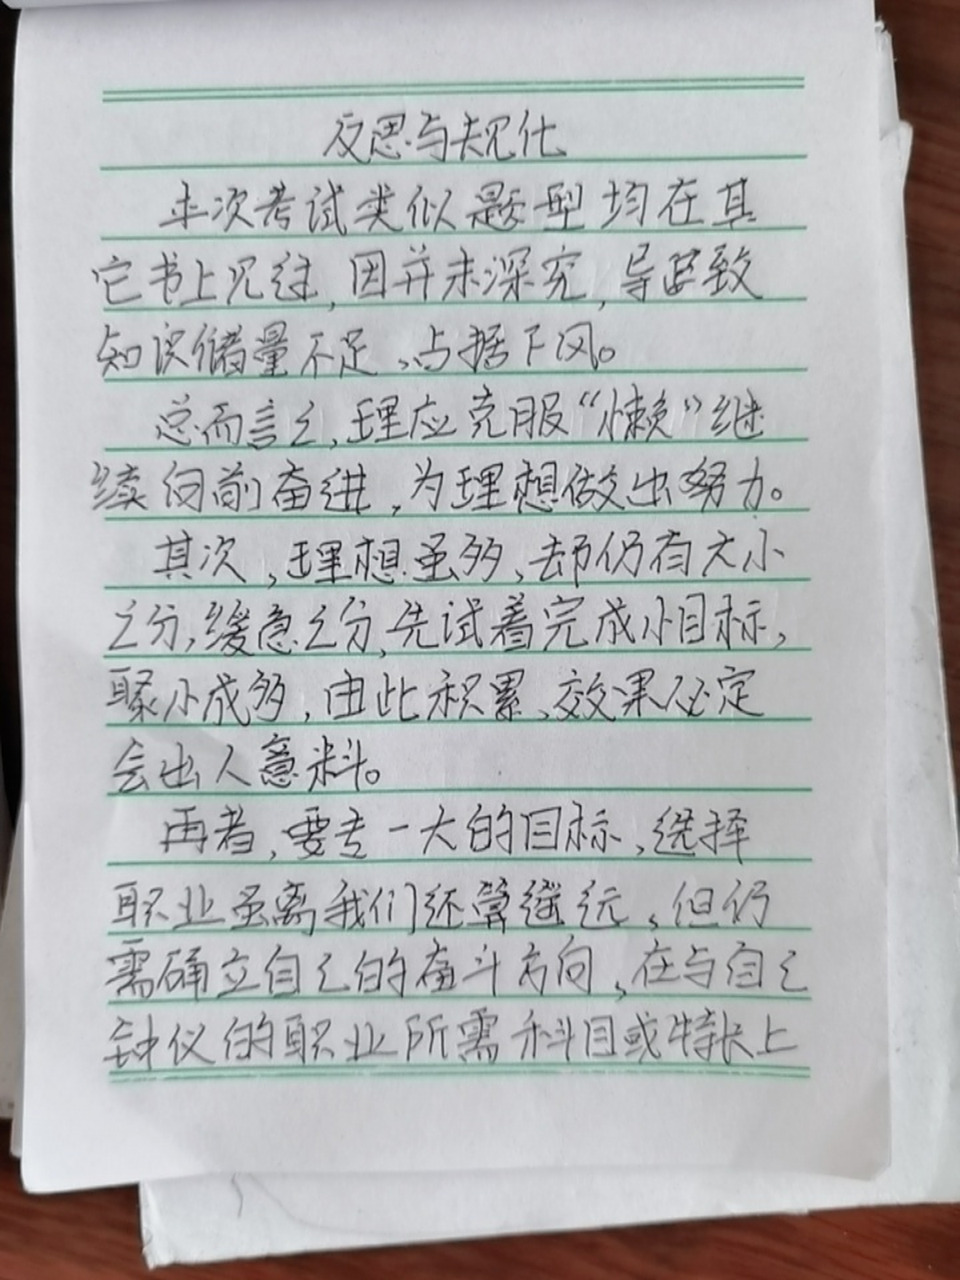 反思与规化
本次考试类似题型均在其
它书上见过,因并未深究,导致
知识储量不足、占据下风。
总而言之,理应克服“懒”继
续向前奋进,为理想做出努力。
其次,理想虽多,却仍有大小
之分,缓急之分,先试着完成小目标,
聚小成多,由此积累、效果必定
会出人意料。
再者,要专一大的目标,选择
职业虽离我们还算遥远,但仍
需确立自己的奋斗方向,在与自己
钟仪的职业所需科目或特长上